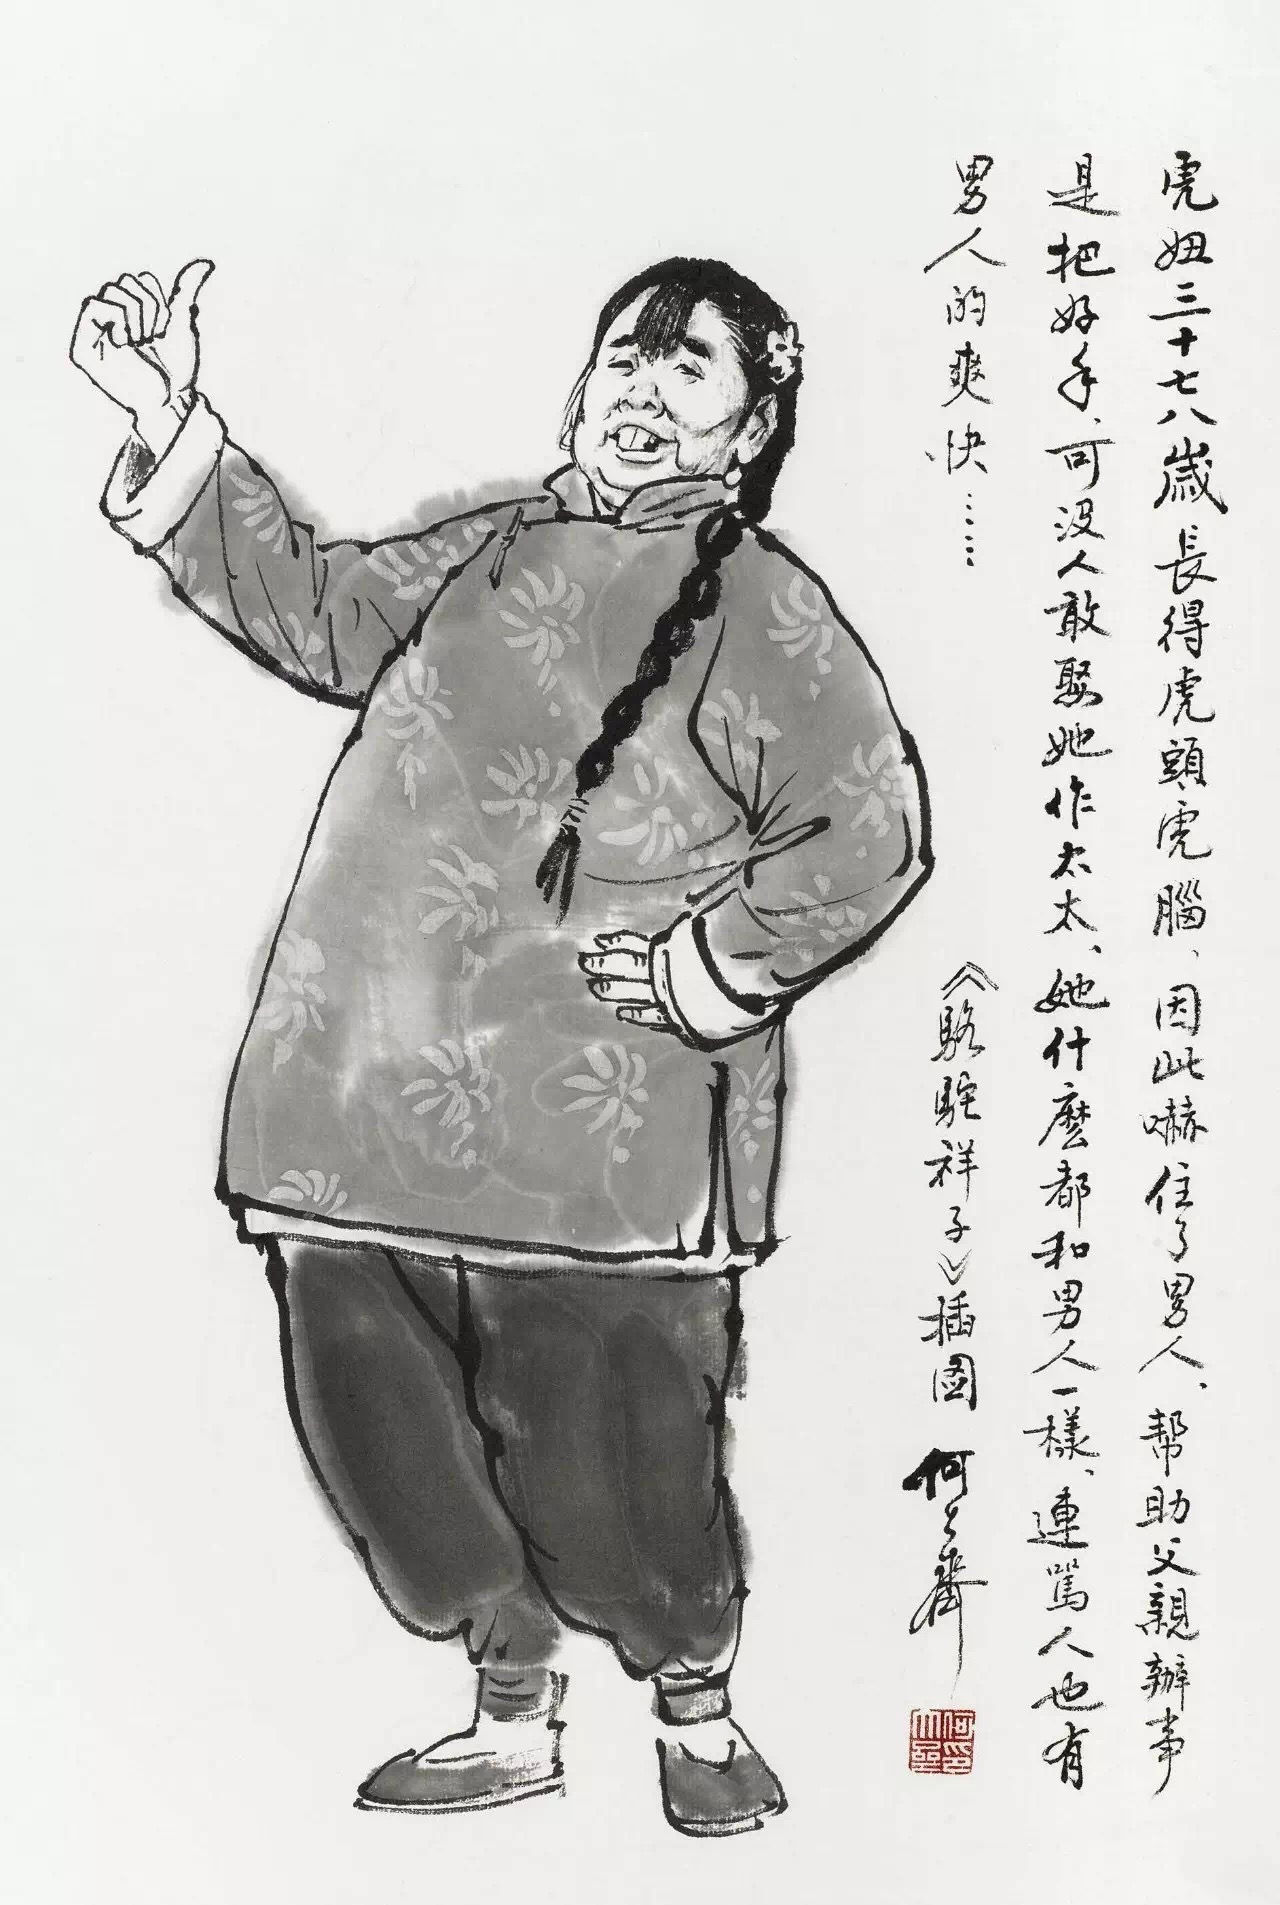 虎妞三十七八歲長得虎頭虎腦、因此嚇住了男人、帮助父親辦事
是把好手、可没人敢娶她作太太、她什麽都和男人一樣、連駡人也有
男人的爽快……
《駱駝祥子》插图 何大齊